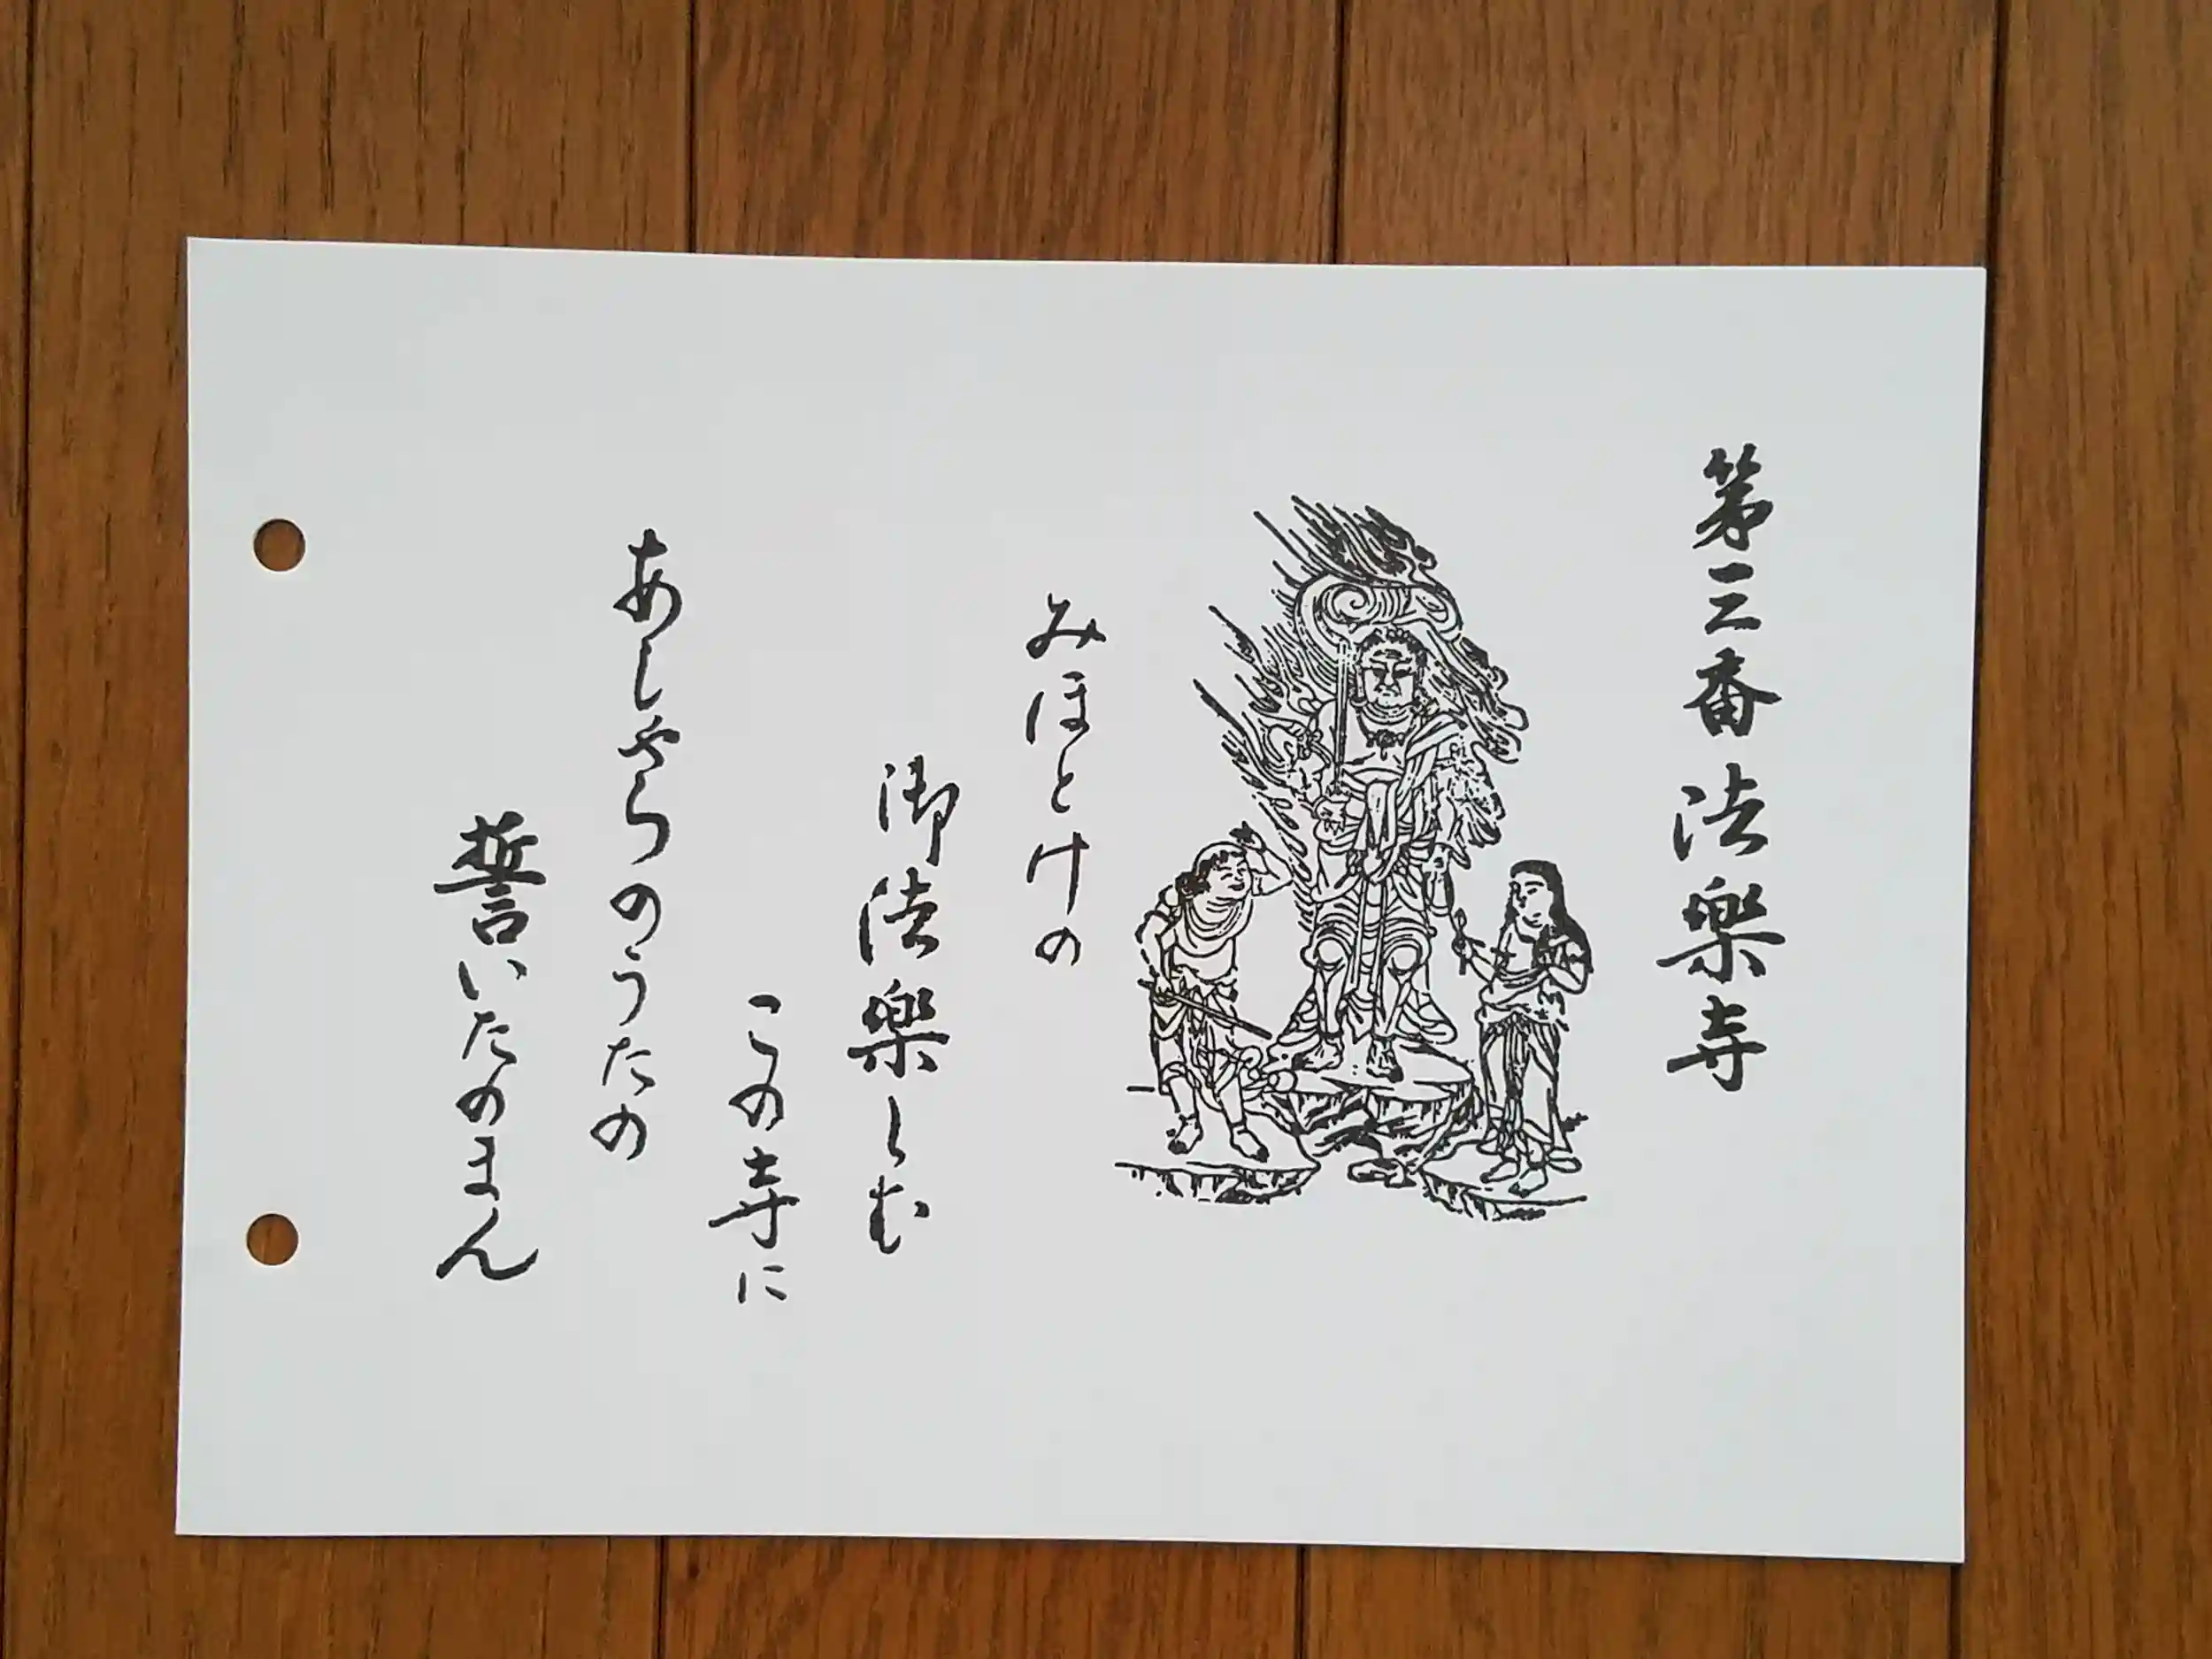 第三番 法楽寺
みほとけの
御法楽しむ
この寺に
あしやらのうたの
誓いたのまん